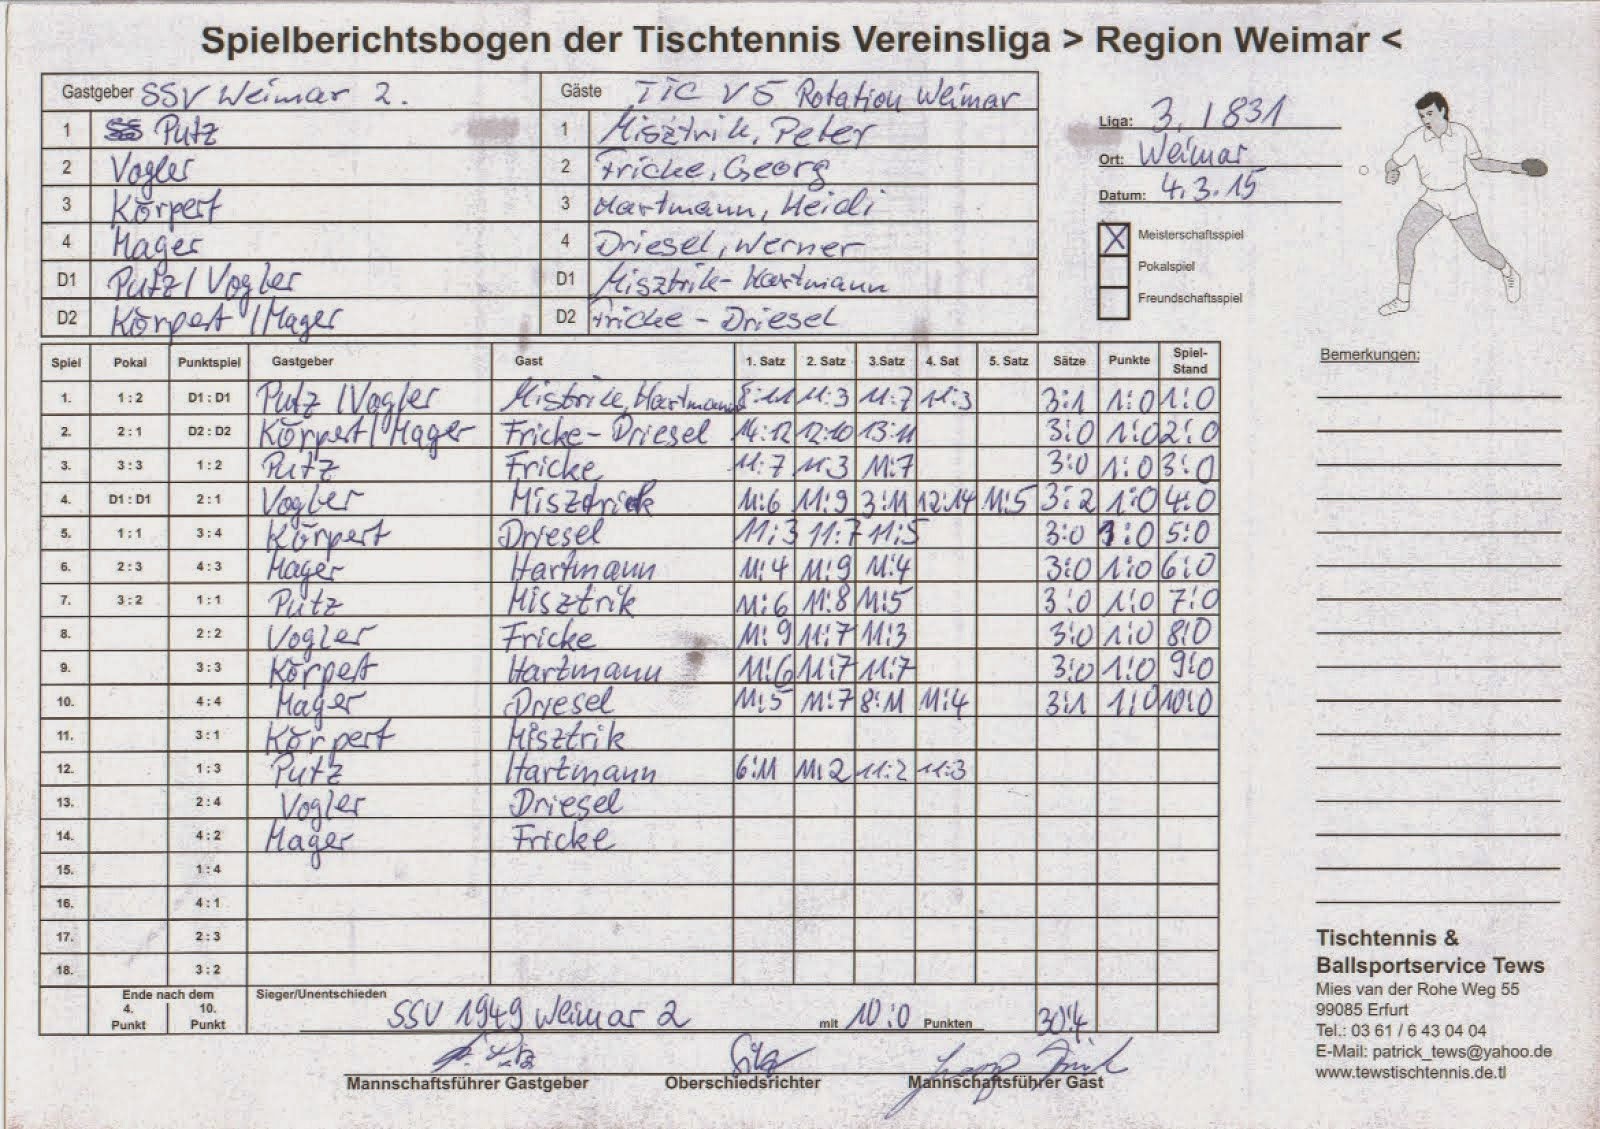 Spielberichtsbogen der Tischtennis Vereinsliga > Region Weimar <
Gastgeber SSV Weimar 2. Gäste TTC VS Rotation Weimar
1 Putz 1 Misztrik, Peter
2 Vogler 2 Fricke, Georg
3 Körpert 3 Hartmann, Heidi
4 Mager 4 Driesel, Werner
D1 Putz / Vogler D1 Misztrik - Hartmann
D2 Körpert / Mager D2 Fricke - Driesel
Liga: 3. / 831
Ort: Weimar
Datum: 4.3.15
X Meisterschaftsspiel
Pokalspiel
Freundschaftsspiel
Spiel Pokal Punktspiel Gastgeber Gast 1. Satz 2. Satz 3.Satz 4. Sat 5. Satz Sätze Punkte Spiel-Stand
1. 1 : 2 D1 : D1 Putz / Vogler Mistrik, Hartmann 8:11 11:3 11:7 11:3 3:1 1:0 1:0
2. 2 : 1 D2 : D2 Körpert / Mager Fricke - Driesel 14:12 12:10 13:11 3:0 1:0 2:0
3. 3 : 3 1 : 2 Putz Fricke 11:7 11:3 11:7 3:0 1:0 3:0
4. D1 : D1 2 : 1 Vogler Misztrick 11:6 11:9 3:11 12:14 11:5 3:2 1:0 4:0
5. 1 : 1 3 : 4 Körpert Driesel 11:3 11:7 11:5 3:0 1:0 5:0
6. 2 : 3 4 : 3 Mager Hartmann 11:4 11:9 11:4 3:0 1:0 6:0
7. 3 : 2 1 : 1 Putz Misztrik 11:6 11:8 11:5 3:0 1:0 7:0
8. 2 : 2 Vogler Fricke 11:9 11:7 11:3 3:0 1:0 8:0
9. 3 : 3 Körpert Hartmann 11:6 11:7 11:7 3:0 1:0 9:0
10. 4 : 4 Mager Driesel 11:5 11:7 8:11 11:4 3:1 1:0 10:0
11. 3 : 1 Körpert Misztrik
12. 1 : 3 Putz Hartmann 6:11 11:2 11:2 11:3
13. 2 : 4 Vogler Driesel
14. 4 : 2 Mager Fricke
15. 1 : 4
16. 4 : 1
17. 2 : 3
18. 3 : 2
Ende nach dem
4. Punkt 10. Punkt
Sieger/Unentschieden SSV 1949 Weimar 2 mit 10:0 Punkten 30:4
Mannschaftsführer Gastgeber Oberschiedsrichter Mannschaftsführer Gast
Bemerkungen:
Tischtennis &
Ballsportservice Tews
Mies van der Rohe Weg 55
99085 Erfurt
Tel.: 03 61 / 6 43 04 04
E-Mail: patrick_tews@yahoo.de
www.tewstischtennis.de.tl